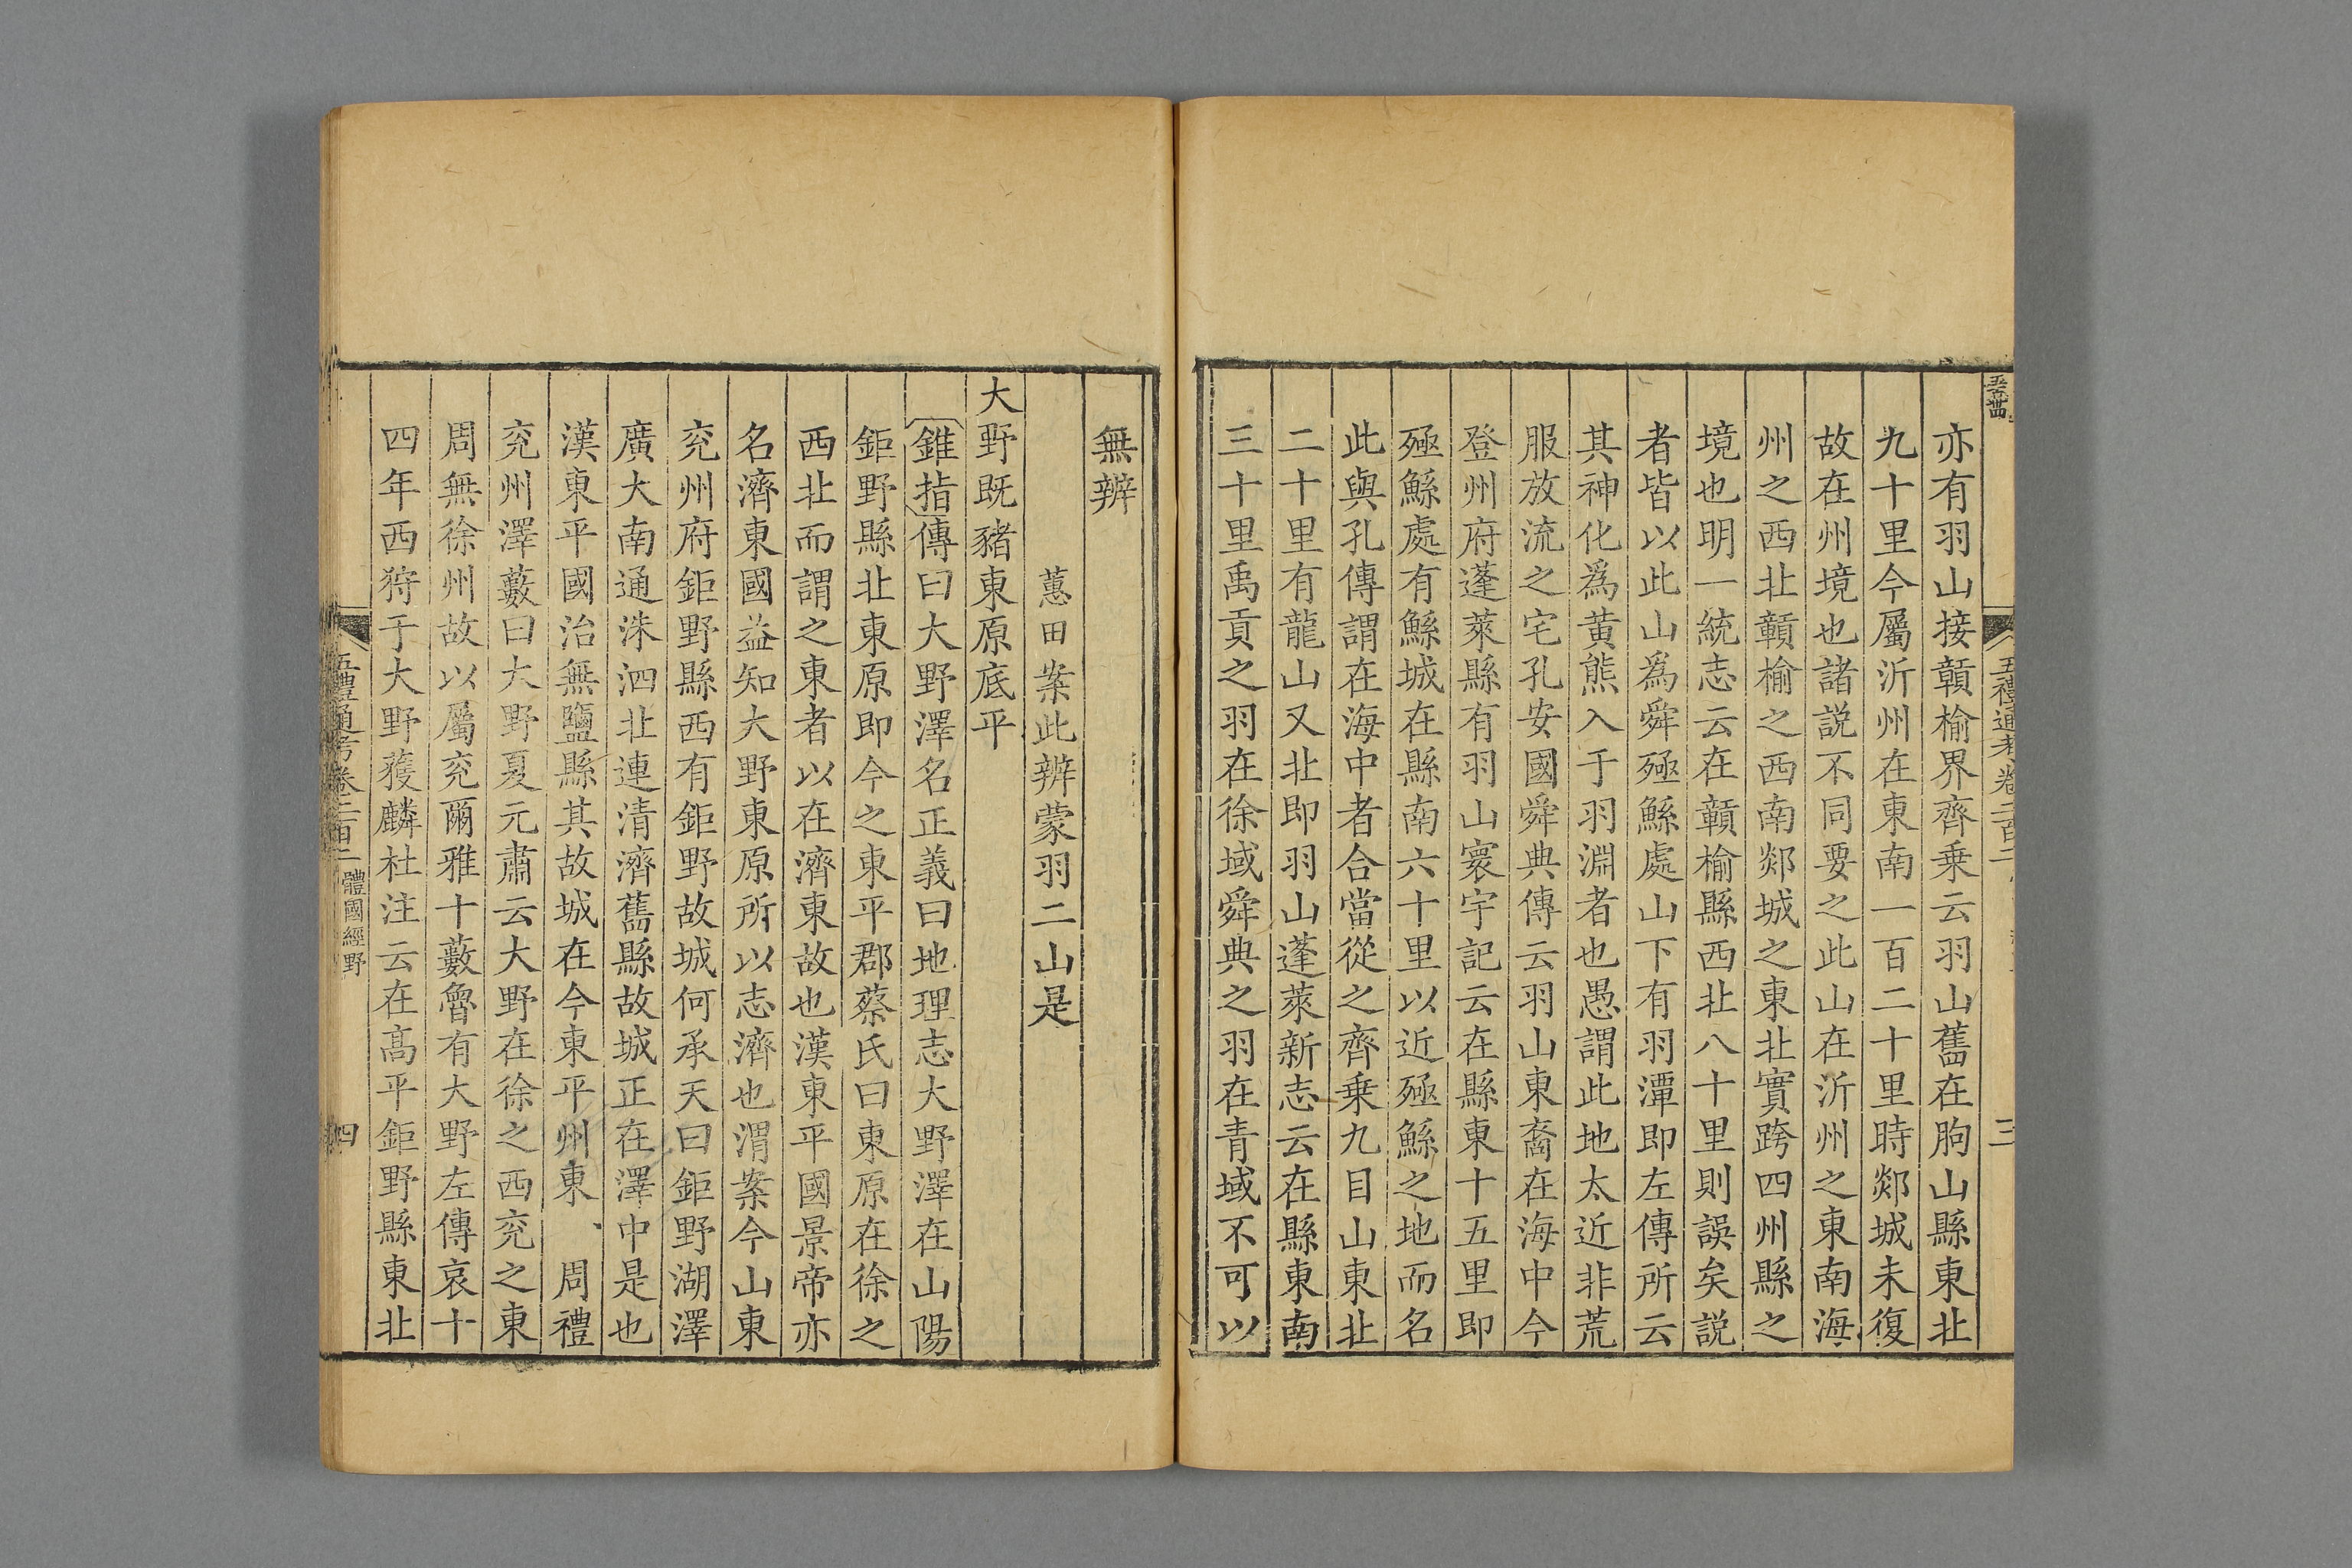 亦有羽山接贛榆界齊乗云羽山舊在朐山縣東北
九十里今屬沂州在東南一百二十里時郯城未復
故在州境也諸説不同要之此山在沂州之東南海
州之西北贛榆之西南郯城之東北實跨四州縣之
境也明一統志云在贛榆縣西北八十里則誤矣説
者皆以此山爲舜殛鯀處山下有羽潭即左傳所云
其神化爲黄熊入于羽淵者也愚謂此地太近非荒
服放流之宅孔安國舜典傳云羽山東裔在海中今
登州府蓬萊縣有羽山寰宇記云在縣東十五里即
殛鯀處有鯀城在縣南六十里以近殛鯀之地而名
此與孔傳謂在海中者合當從之齊乗九目山東北
二十里有龍山又北即羽山蓬萊新志云在縣東南
三十里禹貢之羽在徐域舜典之羽在青域不可以
無辨
蕙田案此辨蒙羽二山是
大野既豬東原底平
錐指傳曰大野澤名正義曰地理志大野澤在山陽
鉅野縣北東原即今之東平郡蔡氏曰東原在徐之
西北而謂之東者以在濟東故也漢東平國景帝亦
名濟東國益知大野東原所以志濟也渭案今山東
兖州府鉅野縣西有鉅野故城何承天曰鉅野湖澤
廣大南通洙泗北連清濟舊縣故城正在澤中是也
漢東平國治無鹽縣其故城在今東平州東 周禮
兖州澤藪曰大野夏元肅云大野在徐之西兖之東
周無徐州故以屬兖爾雅十藪魯有大野左傳哀十
四年西狩于大野獲麟杜注云在髙平鉅野縣東北
五禮通考卷二百二 體國經野 四